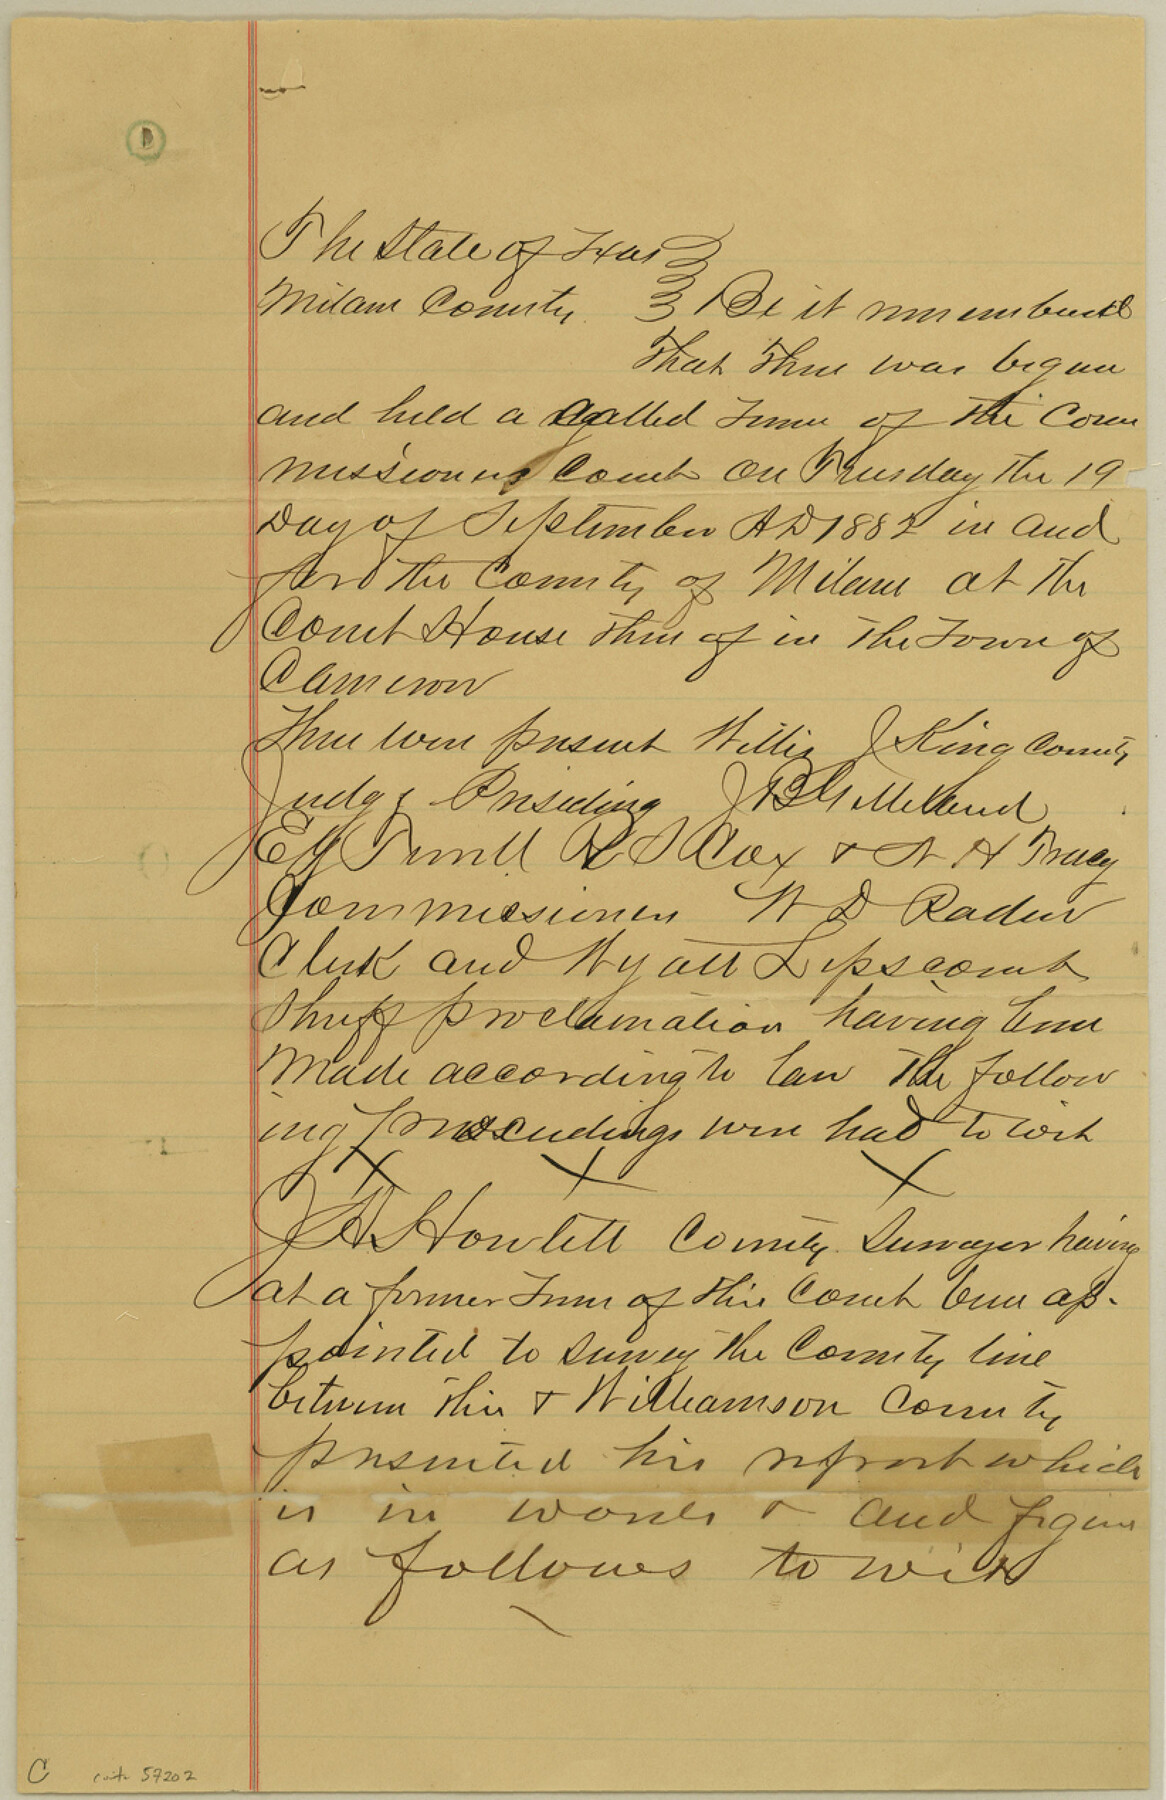 B
The State of Texas }
Milam County } Be it remembered
That there was began
and held a called Term of the Com
missioners Court on Tuesday the 19
Day of September AD 1882 in and
for the County of Milam at the
Court House thereof in the Town of
Cameron
There were present Willis J King County
Judge Presiding J B Gilleland
E Y Terrell R S Cox & N H Tracy
Commissioners W D Rader
Clerk and Wyatt Lipscomb
Sheriff proclamation having been
Made according to law The follow
ing proceedings were had to wit
X X X
J H Howlett County Surveyor having
at a former Term of this Court been ap-
pointed to Survey the County line
between this & Williamson County
presented his report which
is in words & and figures
as follows to wit
C 57202